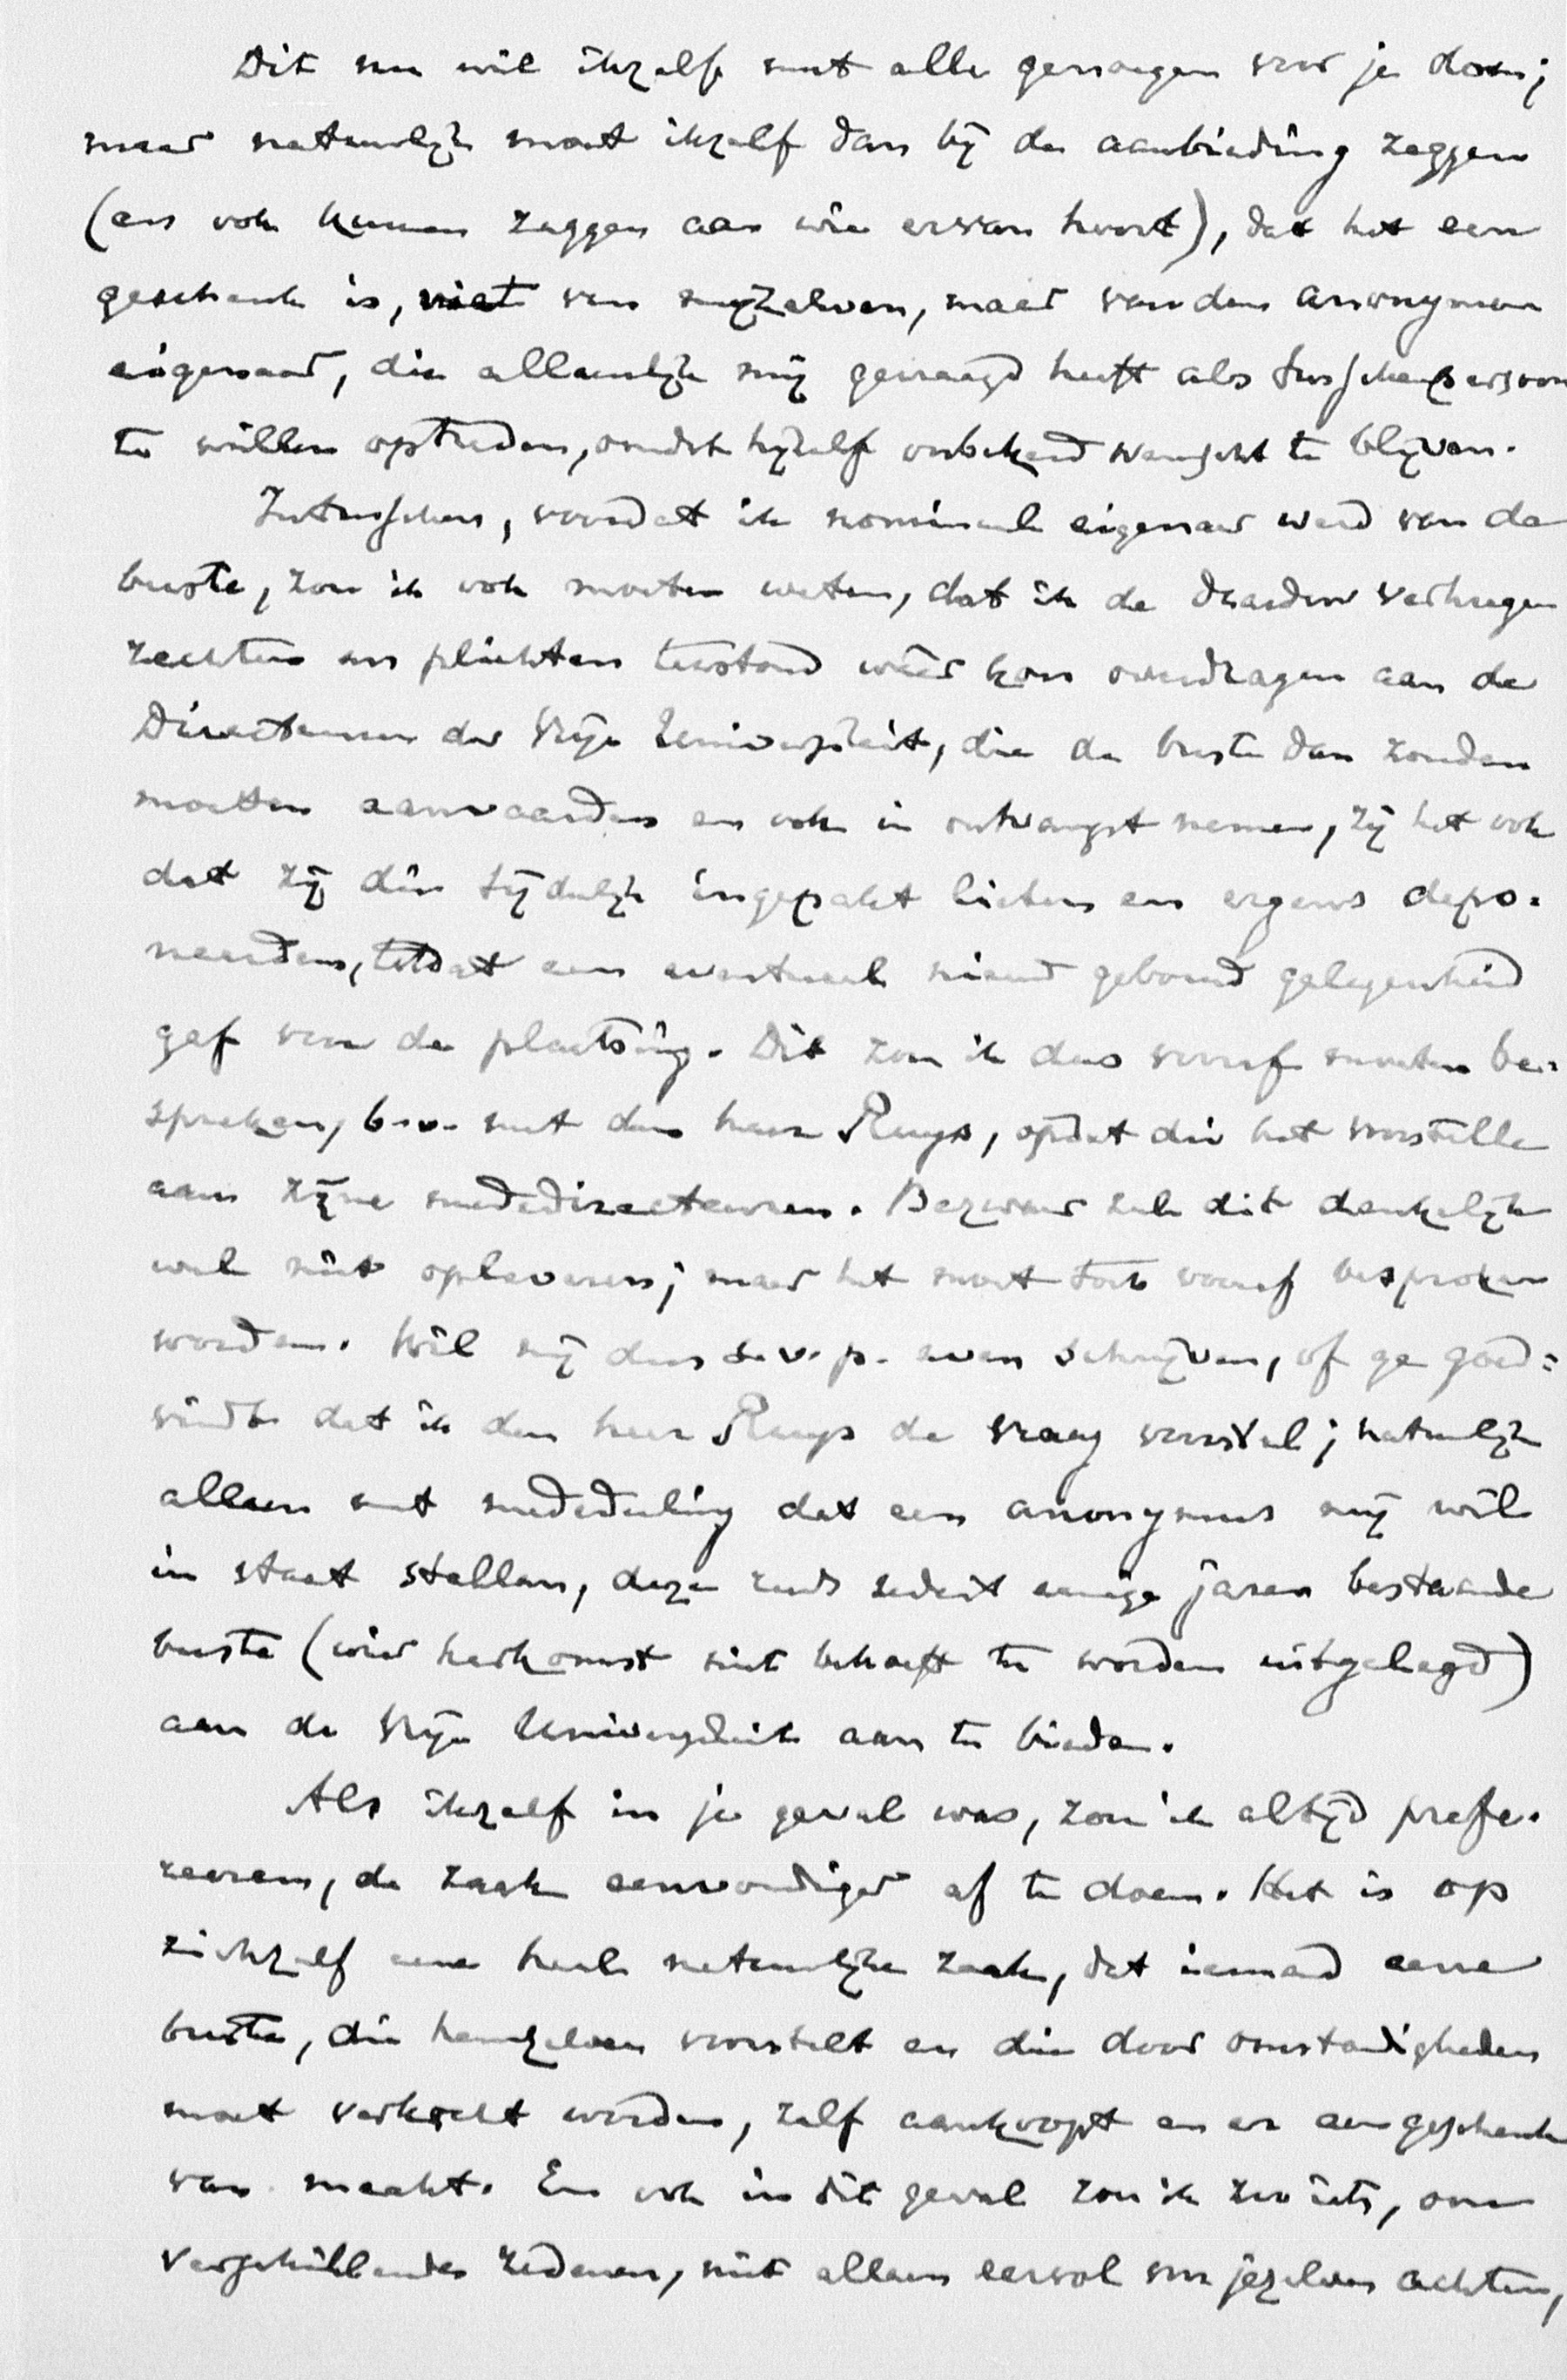 Dit nu wil ikzelf met alle genoegen voor je doen;
maar natuurlijk moet ikzelf dan bij de aanbieding zeggen
(en ook kunnen zeggen aan wie ervan hoort), dat het een
geschenk is, niet van mijzelven, maar van den anonymen
eigenaar, die alleenlijk mij gevraagd heeft als tusschenpersoon
te willen optreden, omdat hijzelf onbekend wenscht te blijven.
Intusschen, voordat ik nominaal eigenaar werd van de
buste, zou ik ook moeten weten, dat ik de daardoor verkregen
rechten en plichten terstond wêer kon overdragen aan de
Directeuren der Vrije Universiteit, die de buste dan zouden
moeten aanvaarden en ook in ontvangst nemen, zij het ook
dat zij die tijdelijk ingepakt lieten en ergens depo=
neerden, totdat een eventueel nieuw gebouw gelegenheid
gaf voor de plaatsing. Dit zou ik dus vooraf moeten be=
spreken, b.v. met den heer Ruys, opdat die het voorstelle
aan zijne mededirecteuren. Bezwaar zal dit denkelijk
wel niet opleveren; maar het moet toch vooraf besproken
worden. Wil mij dus s.v.p. even schrijven, of ge goed=
vindt dat ik den heer Ruys de vraag voorstel; natuurlijk
alleen met mededeeling dat een anonymus mij wil
in staat stellen, deze reeds sedert eenige jaren bestaande
buste (wier herkomst niet behoeft te worden uitgelegd)
aan de Vrije Universiteit aan te bieden.
Als ikzelf in je geval was, zou ik altijd prefe=
reeren, de zaak eenvoudiger af te doen. Het is op
zichzelf eene heel natuurlijke zaak, dat iemand eene
buste, die hemzelven voorstelt en die door omstandigheden
moet verkocht worden, zelf aankoopt en er een geschenk
van maakt. En ook in dit geval zou ik zoo iets, om
verschillende redenen, niet alleen eervol voor jezelven achten,